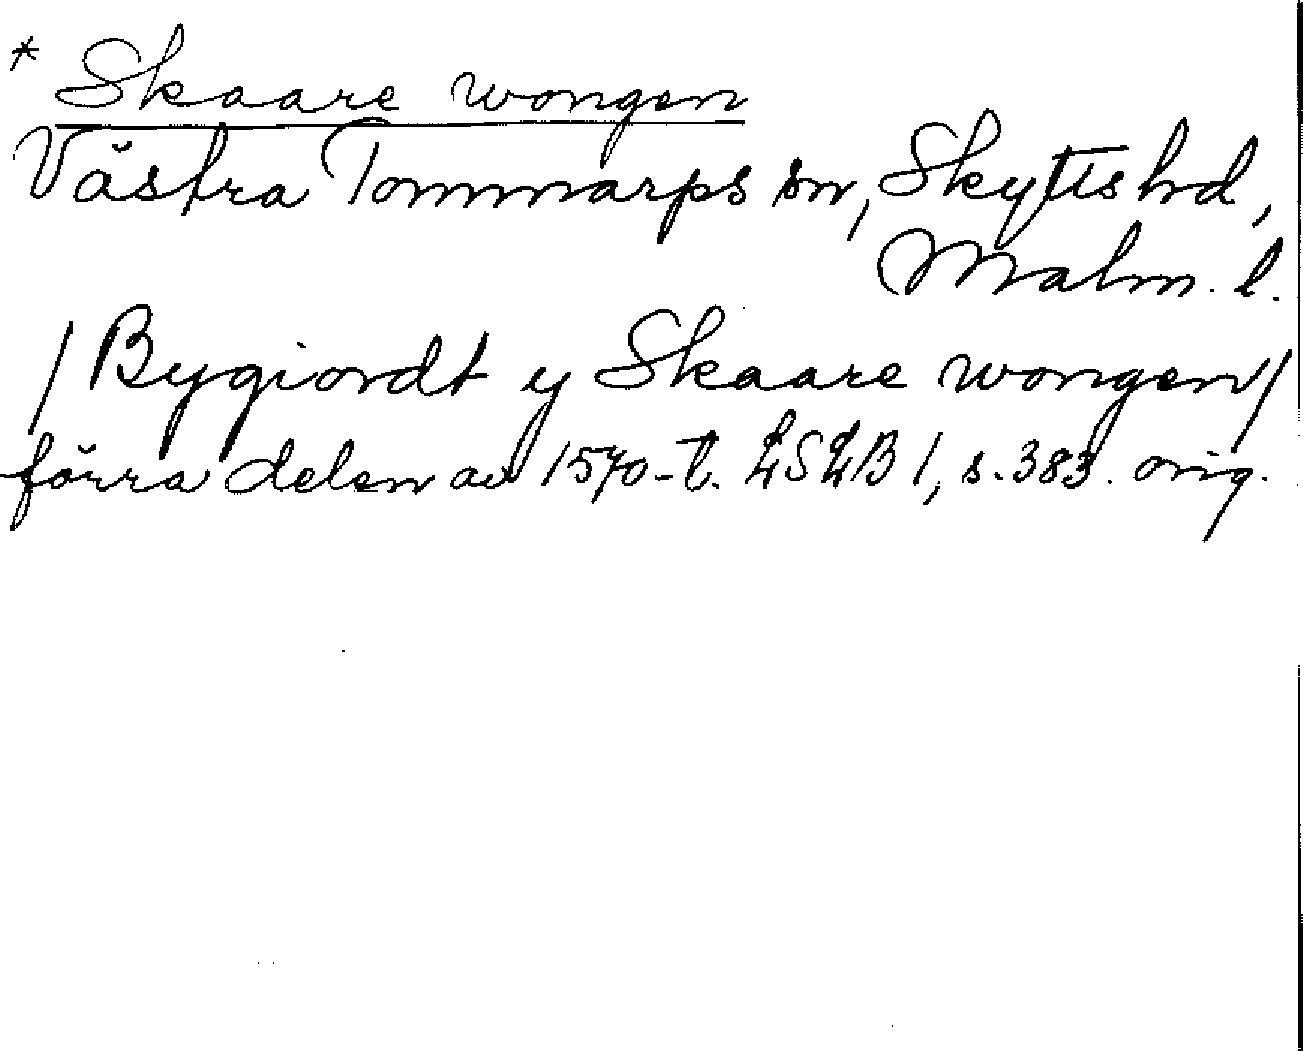 * Skaare wongen
Västra Tommarps sn, Skytts hd,
Malm. l.
/ Bygiordt y Skaare wongen /
förra delen av 1570-t. LSLB 1, s. 383. orig.